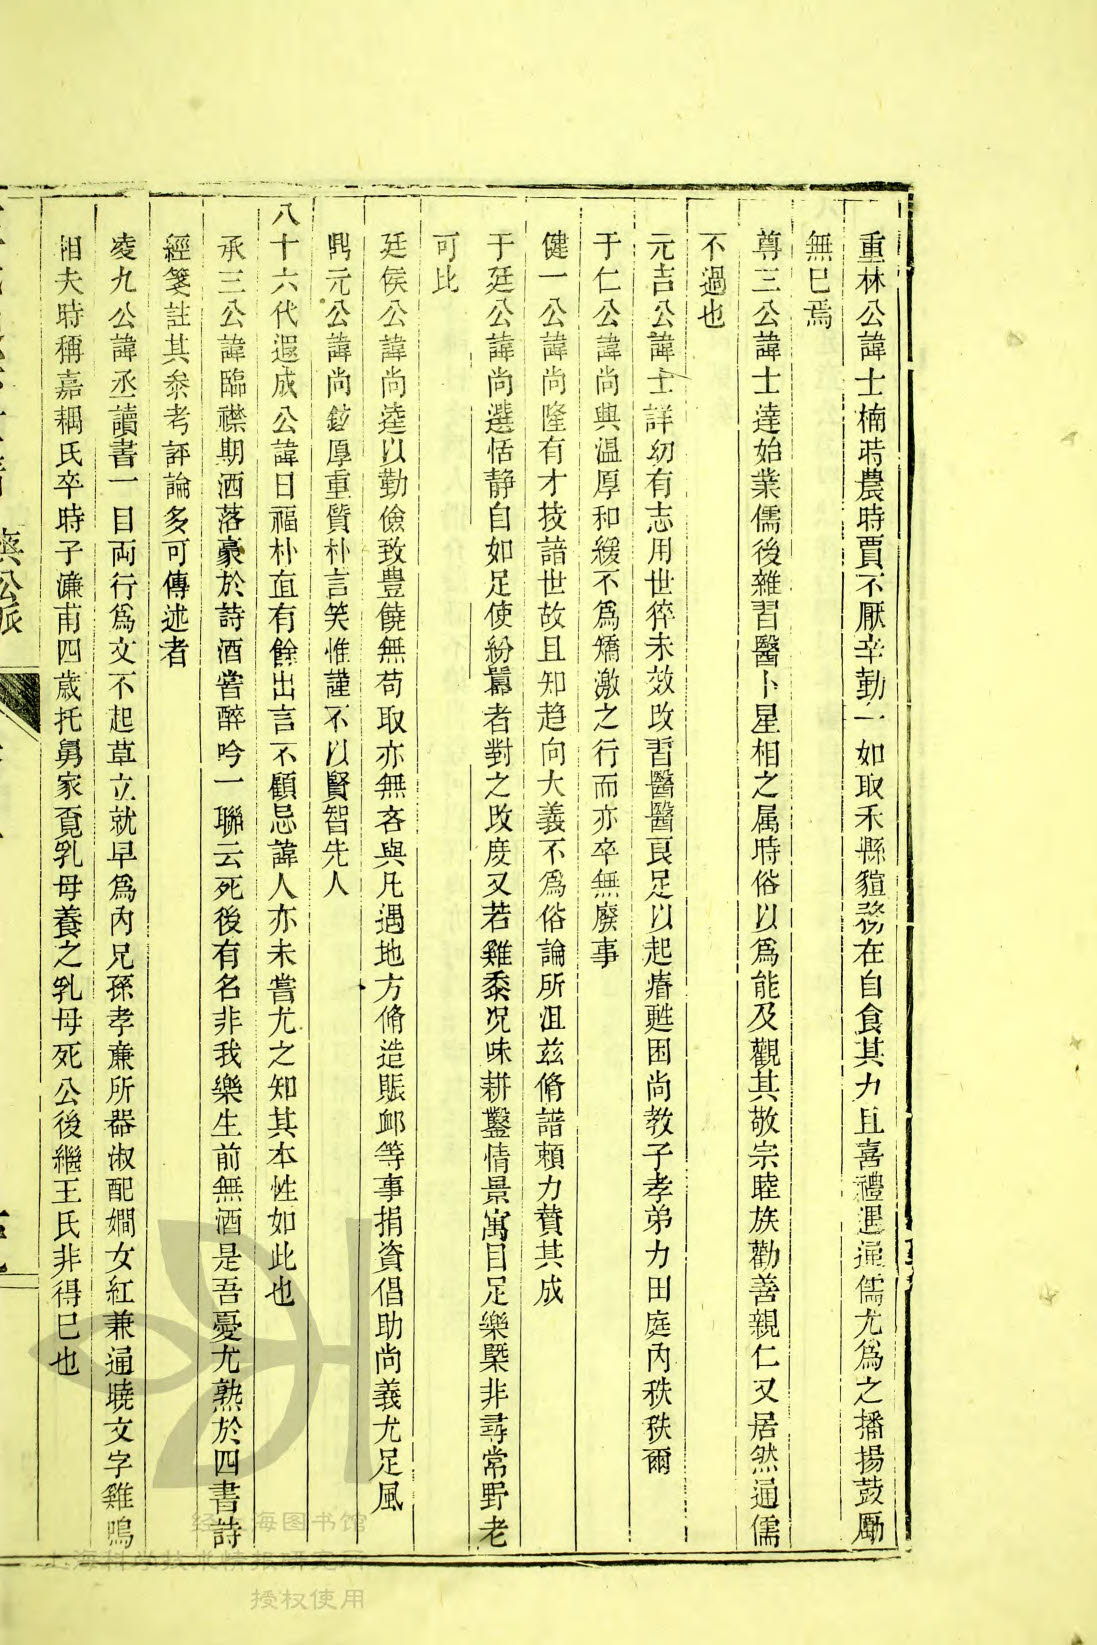 重林公諱士楠時農時賈不厭辛勤一如取禾縣貆務在自食其力且喜禮遇通儒尤爲之播揚鼓勵
無已焉
尊三公諱士達始業儒後雜習醫卜星相之属時俗以爲能及觀其敬宗睦族勸善親仁又居然通儒
不過也
元吉公諱士詳幼有志用世猝未效改習醫醫良足以起瘠甦困尚教子孝弟力田庭內秩秩爾
于仁公諱尚與温厚和緩不爲矯激之行而亦卒無廢事
健一公諱尚隆有才技諳世故且知趋向大義不爲俗論所沮茲脩譜頼力賛其成
于廷公諱尚選恬静自如足使紛囂者對之改度又若雞黍况味耕鑿情景寓目足樂槩非尋常野老
可比
廷侯公諱尚逵以勤儉致豊饒無苟取亦無吝與凡遇地方脩造賑卹等事捐資倡助尚義尤足風
元公諱尚鉉厚重質朴言笑惟謹不以賢智先人
八十六代遐成公諱日福朴直有餘出言不顧忌諱人亦未嘗尤之知其本性如此也
承三公諱臨襟期洒落豪於詩酒嘗醉吟一聯云死後有名非我樂生前無酒是吾憂尤熟於四書詩
經箋註其叅考評論多可傳述者
凌九公諱丞讀書一目両行爲文不起草立就早爲內兄孫孝亷所器淑配嫺女紅兼通曉文字雞鳴
相夫時稱嘉耦氏卒時子濂甫四歳托舅家覔乳母養之乳母死公後繼王氏非得已也
公派
经上海图书馆
上海科学技术情报研究所
授权使用